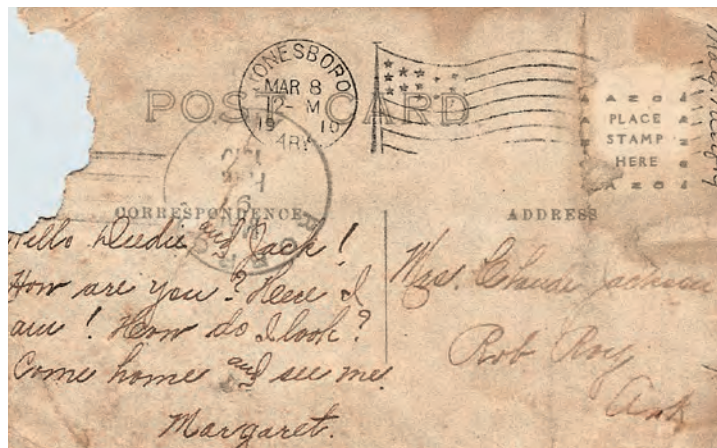 JONESBORO
MAR 8
12- M
19 10
ARK
POST CARD
PLACE
STAMP
HERE
CORRESPONDENCE
ADDRESS
Hello Deedie and Jack!
How are you? Here I
am! How do I look?
Come home and see me
Margaret.
Mrs. Claude Jackson
Rob Roy
Ark